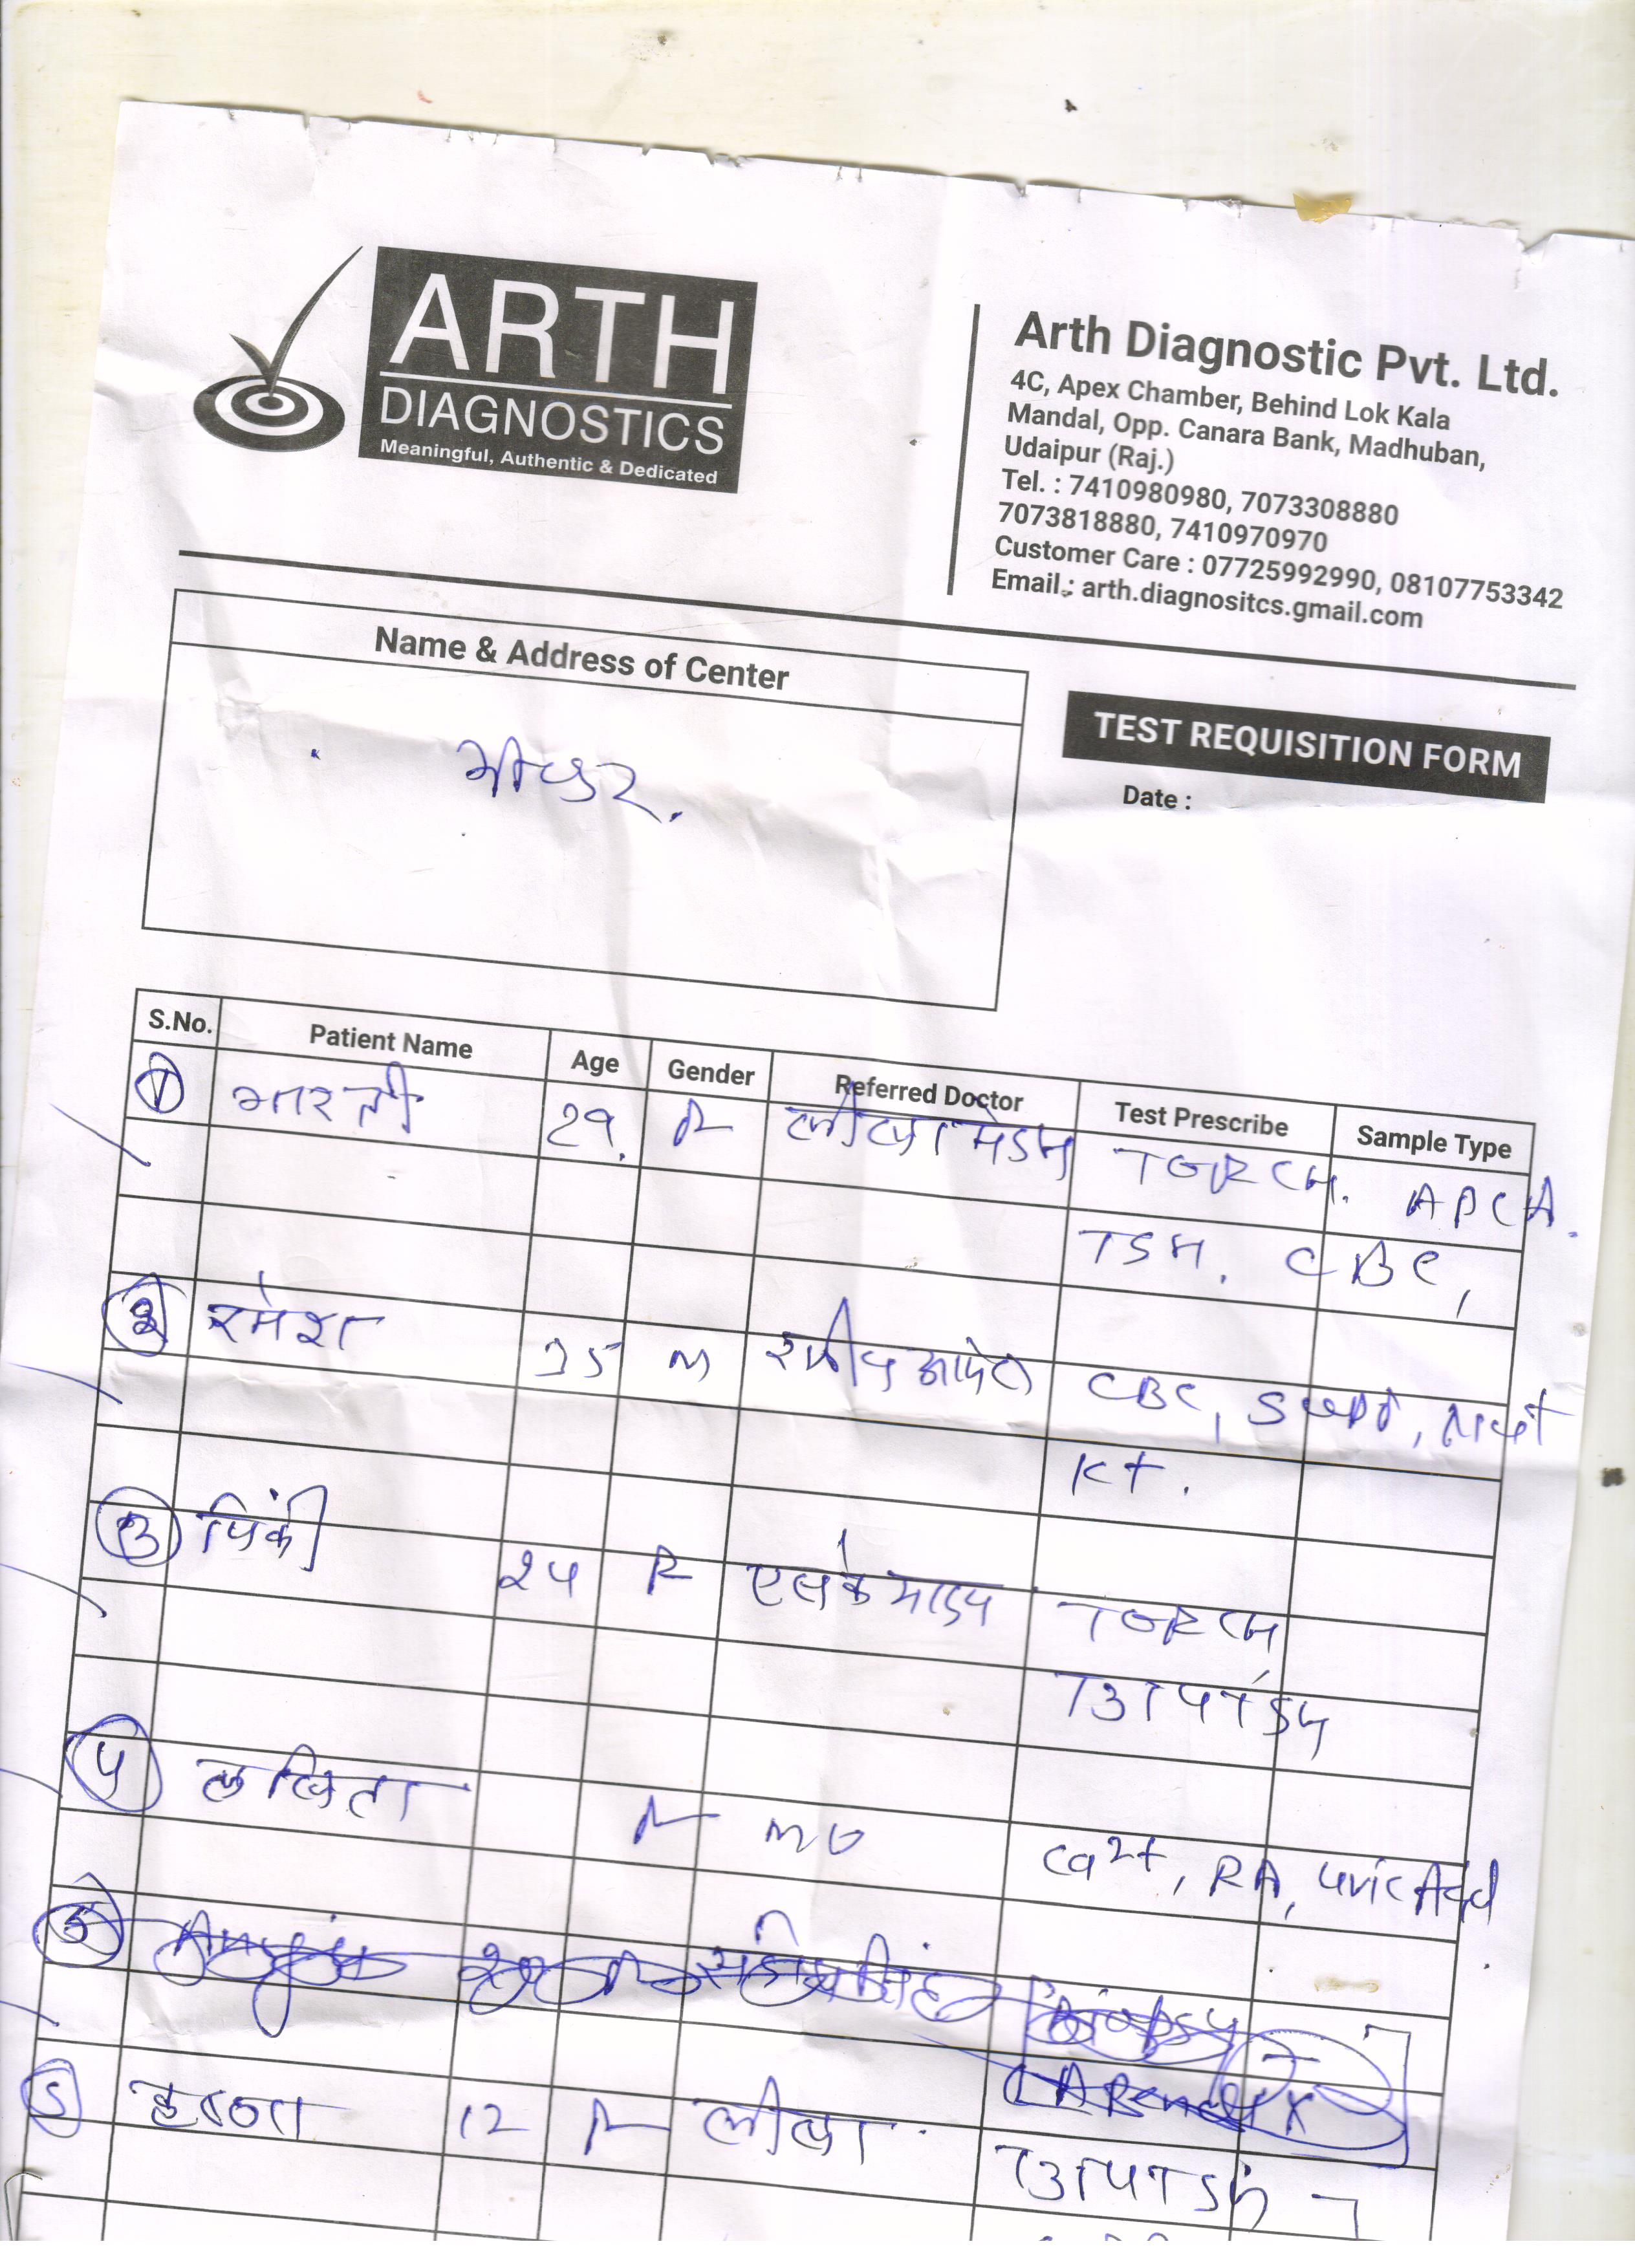 ARTH
DIAGNOSTICS
Meaningful, Authentic & Dedicated
Arth Diagnostic Pvt. Ltd.
4C, Apex Chamber, Behind Lok Kala
Mandal, Opp. Canara Bank, Madhuban,
Udaipur (Raj.)
Tel. : 7410980980, 7073308880
7073818880, 7410970970
Customer Care : 07725992990, 08107753342
Email.: arth.diagnositcs.gmail.com
Name & Address of Center
TEST REQUISITION FORM
Date :
S.No. Patient Name Age Gender Referred Doctor Test Prescribe Sample Type
1 29. TORCH. APCA.
TSH. CBC,
2 रमेश 35 M CBC,
KT.
3 पिंकी 24 TORCH,
T3T4TSH
4 ललिता Ca2+, RA, Uric Acid
5 Biopsy
5 12 लीला T3T4TSH